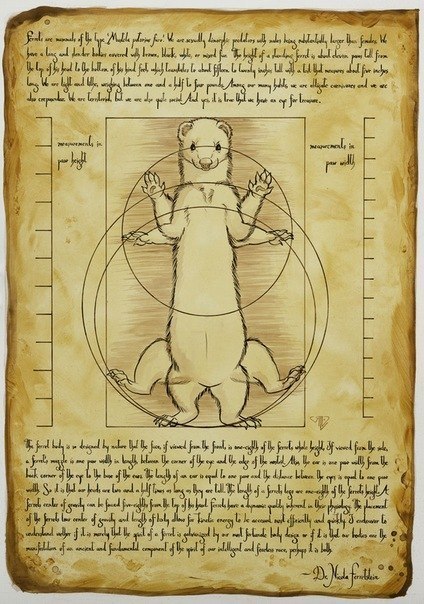 Ferrets are mammals of the type 'Mustela putorius furo'. We are sexually dimorphic predators with males being substantially larger than females. We
have a long and slender bodies covered with brown, black, white, or mixed fur. The height of a standing ferret is about eleven paws tall from
the top of his head to the bottom of his hind feet which translates to about fifteen to twenty inches tall with a tail that measures about four inches
long. We are light and lithe, weighing between one and a half to four pounds. Among our many habits we are obligate carnivores and we are
also crepuscular. We are territorial, but we are also quite social. And yes it is true that we have an eye for treasure.
measurements in
paw height
measurements in
paw width
The ferret body is so designed by nature that the face, if viewed from the front is one-eighth of the ferret's whole height. If viewed from the side,
a ferret's muzzle is one paw width in length, between the corner of the eye and the edge of the nostril. Also the ear is one paw width from the
back corner of the eye to the base of the ears. The length of an ear is equal to one paw and the distance between the eyes is equal to one paw
width. So it is that our heads are two and a half times as long as they are tall. The length of a ferret's legs are one-eighth of the ferret's height. A
ferret's center of gravity can be found five-eighths from the top of his head. Ferrets have a dynamic quality inherent in their physiology. The placement
of the ferret's low center of gravity and length of body allow for kinetic energy to be accrued most efficiently and quickly. I endeavor to
understand wether if it is merely that the spirit of a ferret is galvanized by our most fortunate body design or if it is that our bodies are the
manifestation of an ancient and fundamental component of the spirit of our intelligent and fearless race, perhaps it is both.
~ Da Nicola